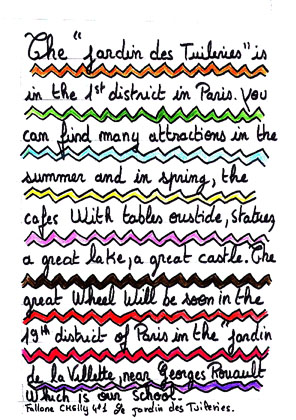 The "jardin des Tuileries" is
in the 1st district in Paris. You
can find many attractions in the
summer and in spring, the
cafes With tables oustide, statues,
a great lake, a great castle. The
great Wheel Will be soon in the
19th district of Paris in the "jardin
de la Villette, near Georges Rouault
Which is our School.
Fallone CHElly 4e1 Le jardin des Tuileries.